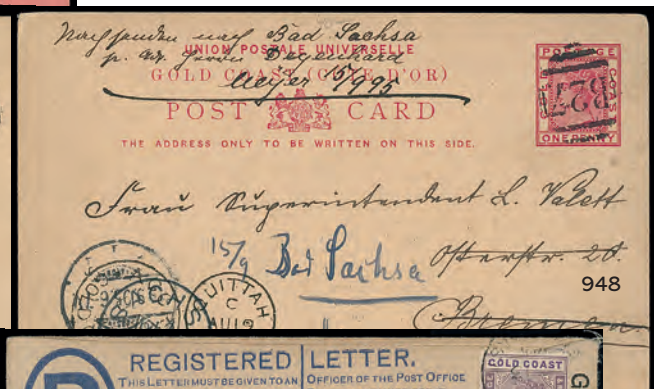 Nachsenden nach Bad Sachsa
p. Adr. Herrn Degenhard
Meyer 15/9 95
UNION POSTALE UNIVERSELLE
GOLD COAST (CÔTE D'OR)
POST CARD
THE ADDRESS ONLY TO BE WRITTEN ON THIS SIDE.
POSTAGE
ONE PENNY
Frau Superintendent L. Valett
15/9 Bad Sachsa Osterstr. 20.
948
Bremen
QUITTAH
C
AU
REGISTERED LETTER.
THIS LETTER MUST BE GIVEN TO AN OFFICER OF THE POST OFFICE
R
GOLD COAST
G